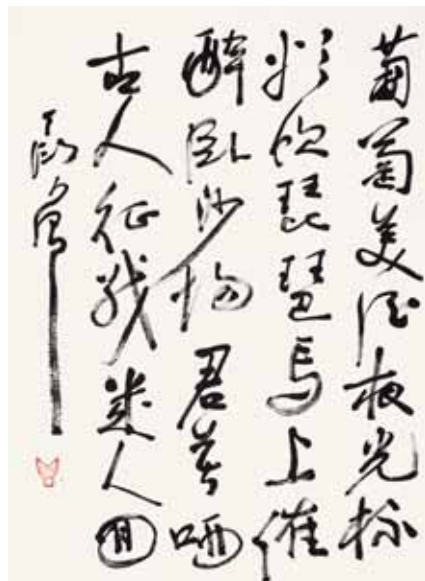 葡萄美酒夜光杯
欲饮琵琶马上催
醉卧沙场君莫哂
古人征战几人回